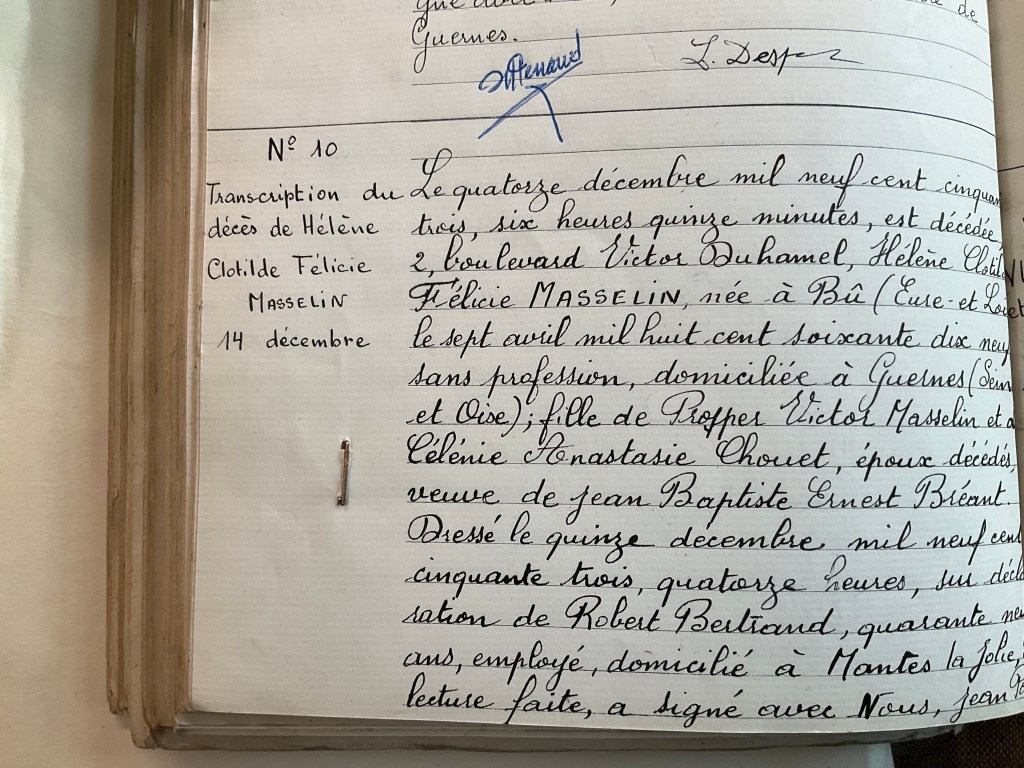 de
Guernes.
L. Desp
Nº 10
Transcription du
décès de Hélène
Clotilde Félicie
MASSELIN
14 décembre
Le quatorze décembre mil neuf cent cinquan
trois, six heures quinze minutes, est décédée,
2, boulevard Victor Duhamel, Hélène Clotil
Félicie MASSELIN, née à Bû (Eure-et-Loir
le sept avril mil huit cent soixante dix neuf
sans profession, domiciliée à Guernes (Sein
et Oise); fille de Prosper Victor Masselin et
Célénie Anastasie Chouet, époux décédés,
veuve de Jean Baptiste Ernest Bréant.
Dressé le quinze decembre mil neuf cent
cinquante trois, quatorze heures, sur décla
ration de Robert Bertrand, quarante neu
ans, employé, domicilié à Mantes la Jolie,
lecture faite, a signé avec Nous, Jean